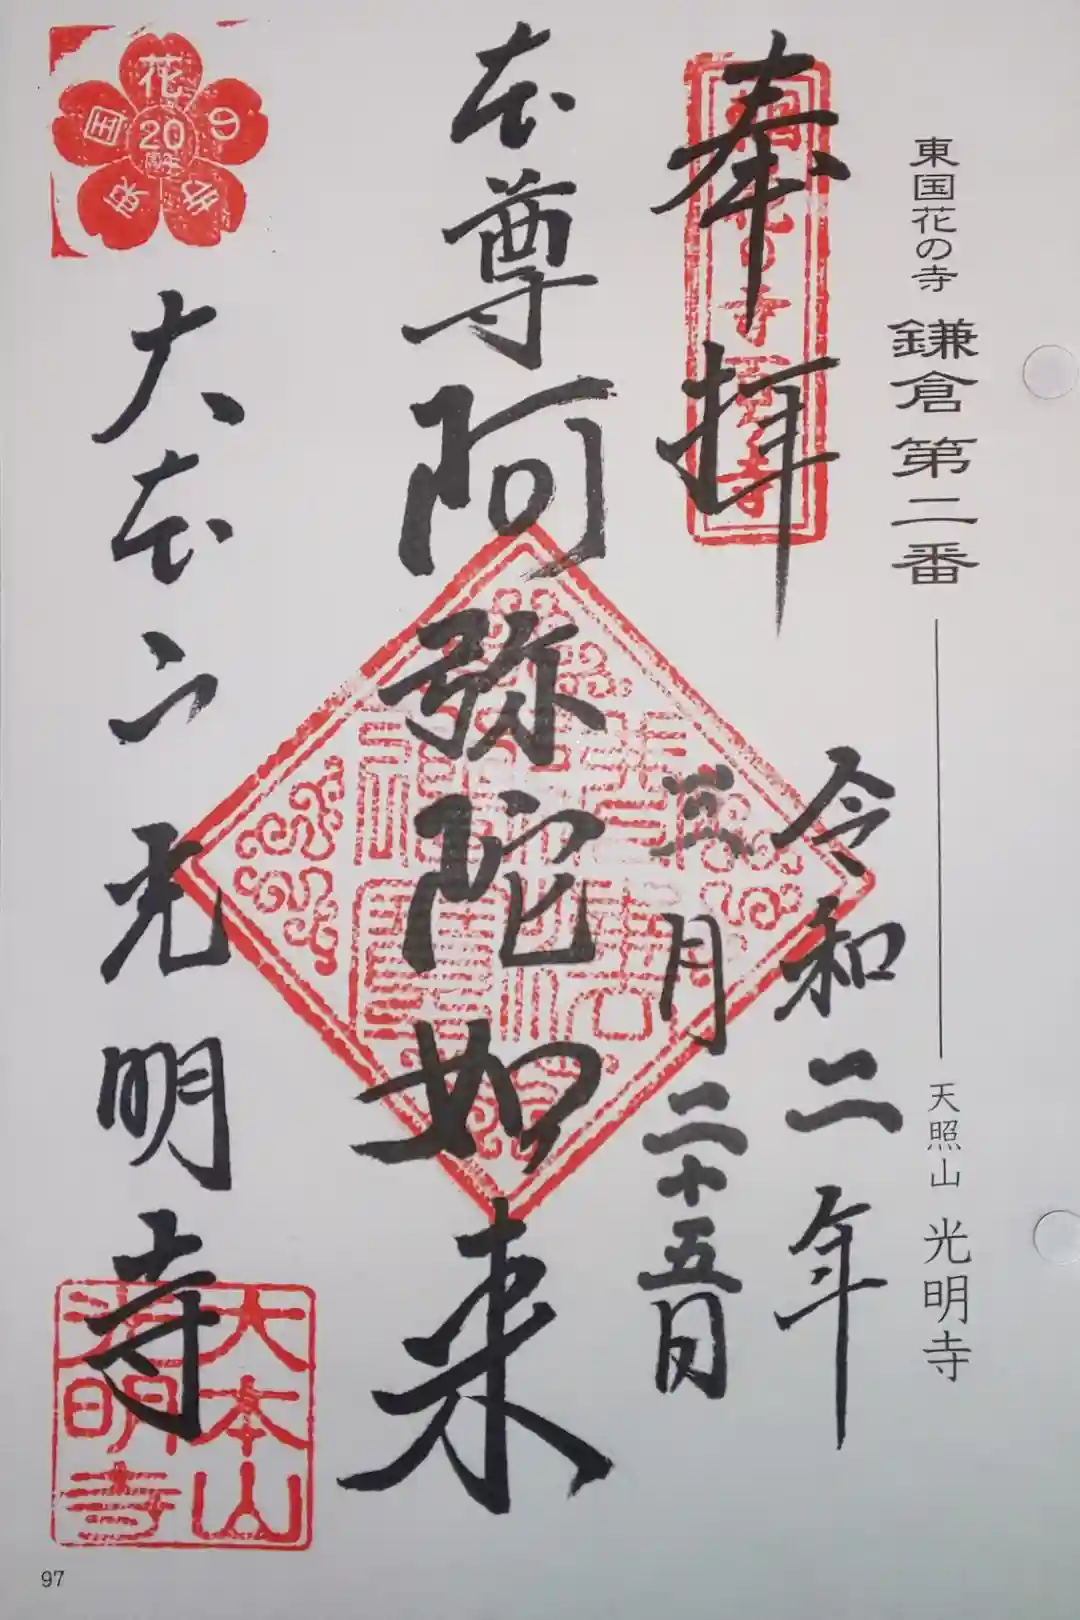 東国花の寺 鎌倉第二番 天照山 光明寺
奉拝
令和二年
三月二十五日
本尊阿弥陀如来
大本山光明寺
東国花の寺
20
周年
大本山
光明寺
97